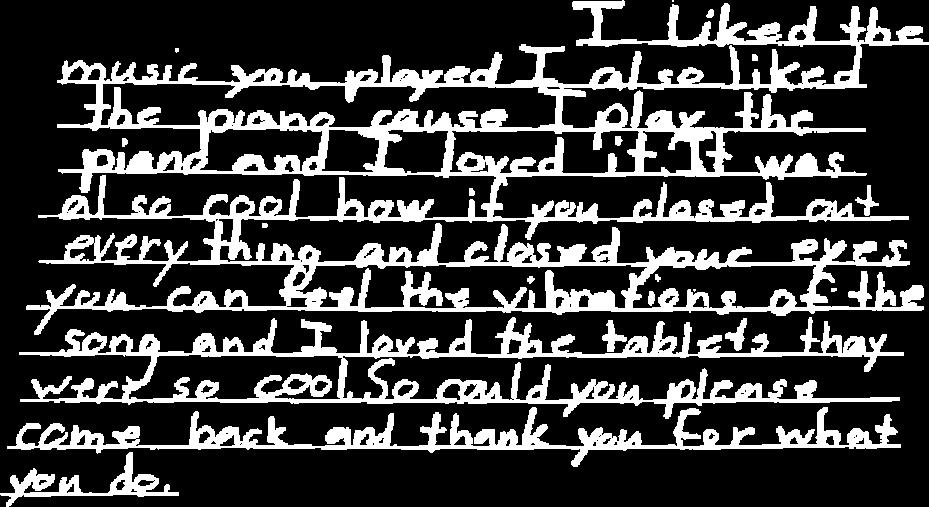 I liked the
music you played I also liked
the piano cause I play the
piano and I loved it. It was
also cool how if you closed out
every thing and closed your eyes
you can feel the vibrations of the
song and I loved the tablets thay
were so cool. So could you please
come back and thank you for what
you do.